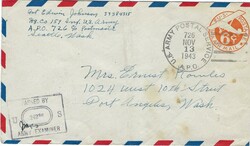 Edwin Johnson
Co 157 Engr. U.S. Army
A.P.O. 726 % Postmaster
Seattle Wash
U.S. ARMY POSTAL SERVICE
726
NOV
13
1943
A.P.O.
6¢
Mrs Ernest
1024 West 10th Street
Port Angeles, Wash
PASSED BY
ARMY EXAMINER